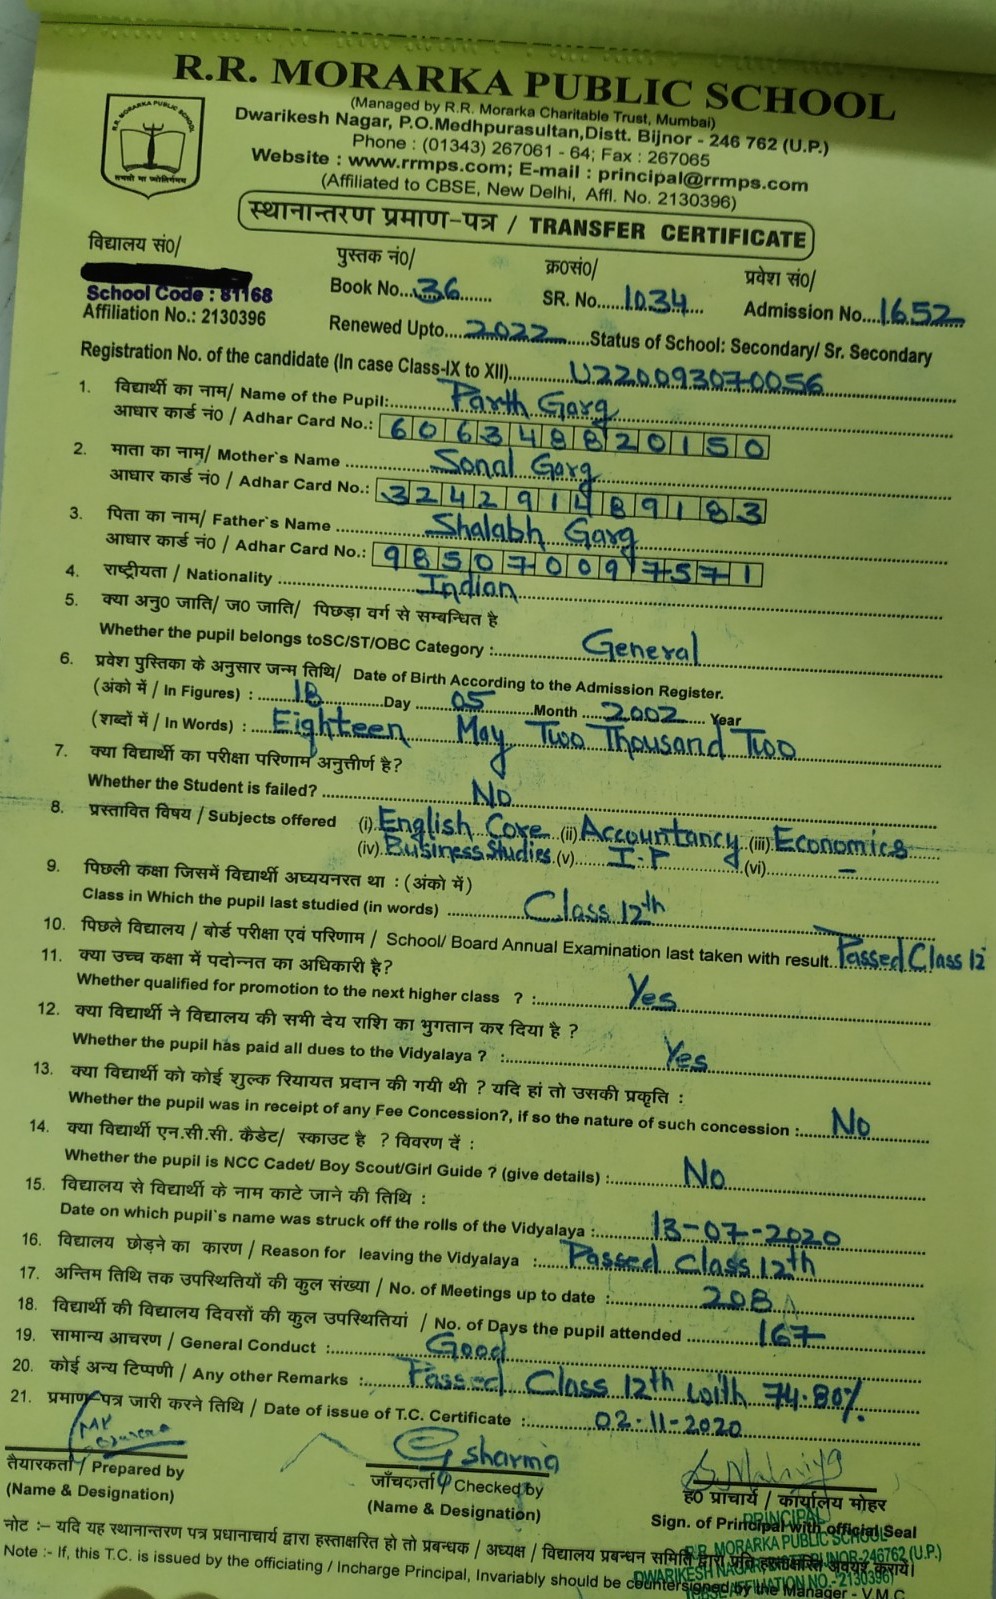 R.R. MORARKA PUBLIC SCHOOL
(Managed by R.R. Morarka Charitable Trust, Mumbai)
Dwarikesh Nagar, P.O.Medhpurasultan,Distt. Bijnor - 246 762 (U.P.)
Phone : (01343) 267061 - 64; Fax : 267065
Website : www.rrmps.com; E-mail : principal@rrmps.com
(Affiliated to CBSE, New Delhi, Affl. No. 2130396)
R.R. MORARKA PUBLIC SCHOOL
तमसो मा ज्योतिर्गमय
स्थानान्तरण प्रमाण-पत्र / TRANSFER CERTIFICATE
विद्यालय सं0/ पुस्तक नं0/ क्र0सं0/ प्रवेश सं0/
School Code : 81168 Book No....36....... SR. No....1034.... Admission No....1652
Affiliation No.: 2130396 Renewed Upto....2022......Status of School: Secondary/ Sr. Secondary
Registration No. of the candidate (In case Class-IX to XII)..........U220093070056
1. विद्यार्थी का नाम/ Name of the Pupil:........Parth Garg
आधार कार्ड नं0 / Adhar Card No.: 606348820150
2. माता का नाम/ Mother`s Name ..........Sonal Garg
आधार कार्ड नं0 / Adhar Card No.: 324291489183
3. पिता का नाम/ Father`s Name ..........Shalabh Garg
आधार कार्ड नं0 / Adhar Card No.: 985070097571
4. राष्ट्रीयता / Nationality ..........Indian
5. क्या अनु0 जाति/ ज0 जाति/ पिछड़ा वर्ग से सम्बन्धित है
Whether the pupil belongs toSC/ST/OBC Category :..........General
6. प्रवेश पुस्तिका के अनुसार जन्म तिथि/ Date of Birth According to the Admission Register.
(अंको में / In Figures) : ......18......Day ......05......Month ...2002... Year
(शब्दों में / In Words) : ...Eighteen May Two Thousand Two
7. क्या विद्यार्थी का परीक्षा परिणाम अनुत्तीर्ण है?
Whether the Student is failed? ..........No
8. प्रस्तावित विषय / Subjects offered (i) English Core (ii) Accountancy (iii) Economics
(iv) Business Studies (v) I.P (vi) -
9. पिछली कक्षा जिसमें विद्यार्थी अध्ययनरत था : (अंको में)
Class in Which the pupil last studied (in words) ..........Class 12th
10. पिछले विद्यालय / बोर्ड परीक्षा एवं परिणाम / School/ Board Annual Examination last taken with result..Passed Class 12
11. क्या उच्च कक्षा में पदोन्नत का अधिकारी है?
Whether qualified for promotion to the next higher class ? :..........Yes
12. क्या विद्यार्थी ने विद्यालय की सभी देय राशि का भुगतान कर दिया है ?
Whether the pupil has paid all dues to the Vidyalaya ? :..........Yes
13. क्या विद्यार्थी को कोई शुल्क रियायत प्रदान की गयी थी ? यदि हां तो उसकी प्रकृति :
Whether the pupil was in receipt of any Fee Concession?, if so the nature of such concession :......No
14. क्या विद्यार्थी एन.सी.सी. कैडेट/ स्काउट है ? विवरण दें :
Whether the pupil is NCC Cadet/ Boy Scout/Girl Guide ? (give details) :..........No
15. विद्यालय से विद्यार्थी के नाम काटे जाने की तिथि :
Date on which pupil`s name was struck off the rolls of the Vidyalaya :..........13-07-2020
16. विद्यालय छोड़ने का कारण / Reason for leaving the Vidyalaya :......Passed Class 12th
17. अन्तिम तिथि तक उपस्थितियों की कुल संख्या / No. of Meetings up to date :..........208
18. विद्यार्थी की विद्यालय दिवसों की कुल उपस्थितियां / No. of Days the pupil attended ..........167
19. सामान्य आचरण / General Conduct :..........Good
20. कोई अन्य टिप्पणी / Any other Remarks :......Passed Class 12th with 74.80%
21. प्रमाण-पत्र जारी करने तिथि / Date of issue of T.C. Certificate :..........02-11-2020
G sharma
तैयारकर्ता / Prepared by जाँचकर्ता / Checked by ह0 प्राचार्य / कार्यालय मोहर
(Name & Designation) (Name & Designation) Sign. of Principal with official Seal
PRINCIPAL
R.R. MORARKA PUBLIC SCHOOL
DWARIKESH NAGAR, DISTT BIJNOR-246762 (U.P.)
(CBSE AFFILIATION NO.-2130396)
नोट :– यदि यह स्थानान्तरण पत्र प्रधानाचार्य द्वारा हस्ताक्षरित हो तो प्रबन्धक / अध्यक्ष / विद्यालय प्रबन्धन समिति द्वारा प्रति हस्ताक्षरित अवश्य करायें।
Note :- If, this T.C. is issued by the officiating / Incharge Principal, Invariably should be countersigned by the Manager - V.M.C.